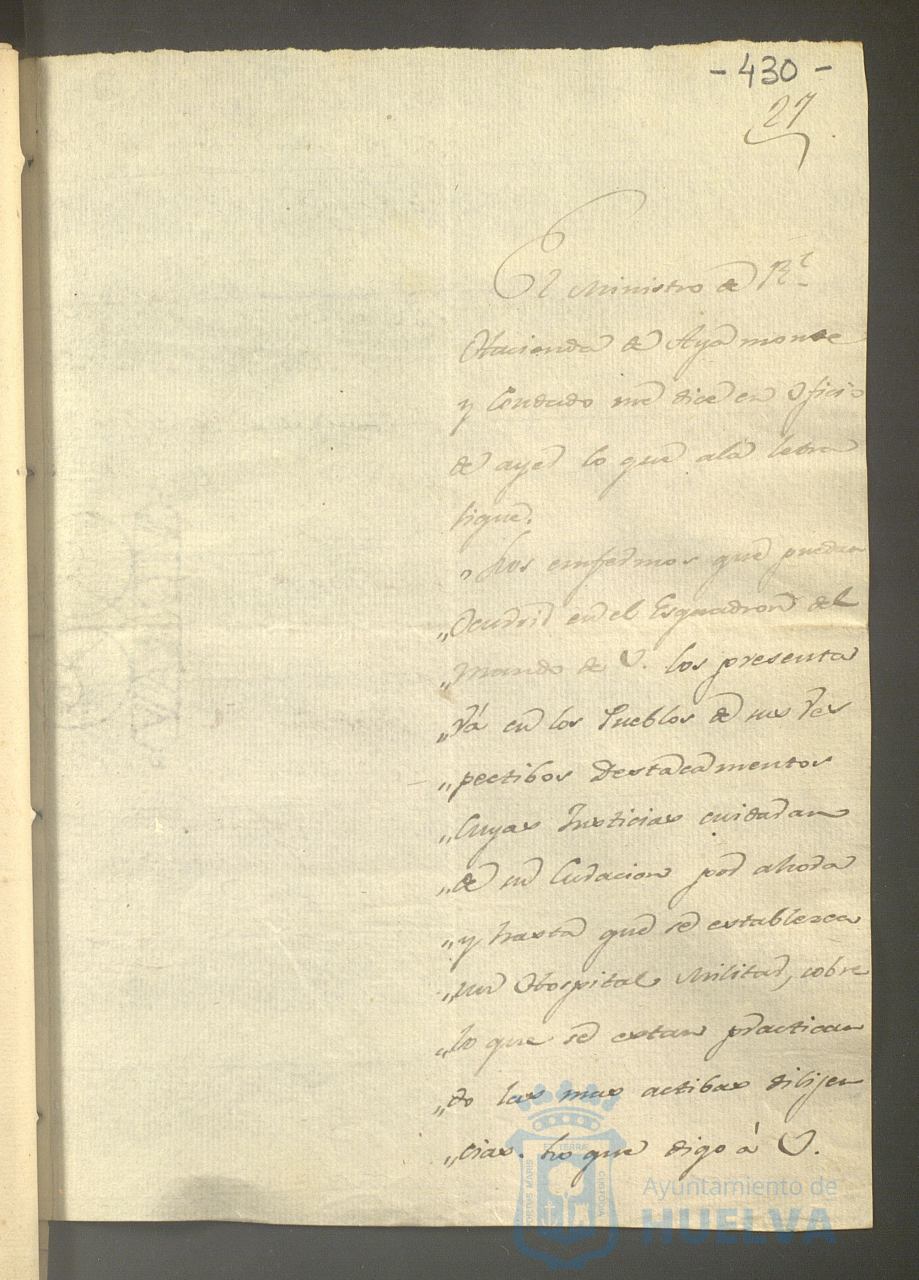 - 430 -
27
El Ministro de Rl
Hacienda de Ayamonte
y Condado me dice en Oficio
de ayer lo que ala letra
sigue.
„ Los enfermos que puedan
„ Ocurrir en el Esquadron del
„ mando de V. los presenta
„ rá en los Pueblos de sus res
„ pectibos Destacamentos
„ Cuyas Justicias cuidaran
„ de su Curacion por ahora
„ y hasta que se establezca
„ un Hospital Militar, sobre
„ lo que se estan practican
„ do las mas actibas dilijen
„ cias. Lo que digo á V.
PORTUS MARIS
ET TERRAE
CUSTODIA
Ayuntamiento de
HUELVA